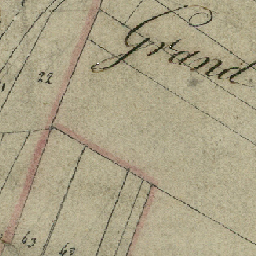 Grand
22
63
62